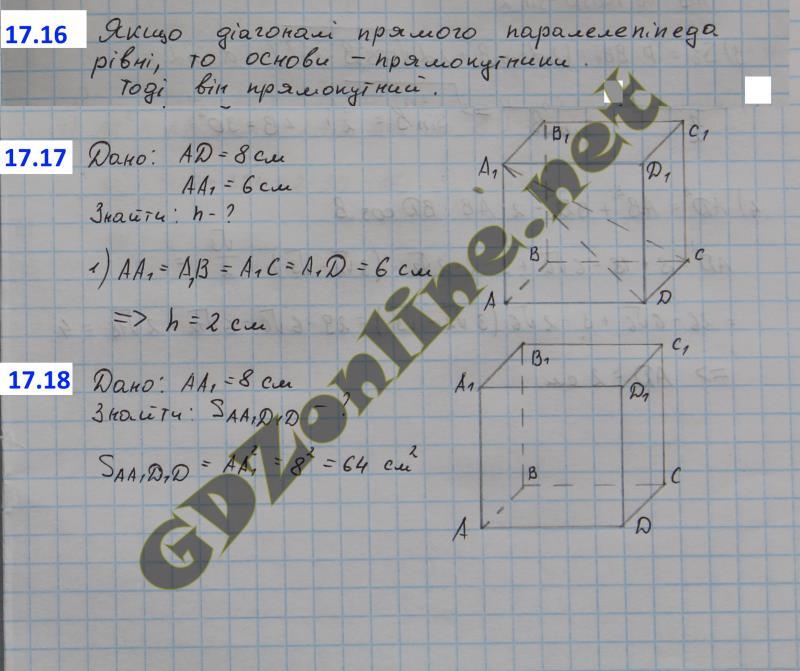 17.16 Якщо діагоналі прямого паралелепіпеда
рівні, то основи – прямокутники.
Тоді він прямокутний.
17.17 Дано: AD = 8 см
AA₁ = 6 см
Знайти: h - ?
1) AA₁ = A₁B = A₁C = A₁D = 6 см
=> h = 2 см
B₁ C₁
A₁ D₁
B C
A D
17.18 Дано: AA₁ = 8 см
Знайти: S_AA₁D₁D - ?
S_AA₁D₁D = AA₁² = 8² = 64 см²
B₁ C₁
A₁ D₁
B C
A D
GDZonline.net